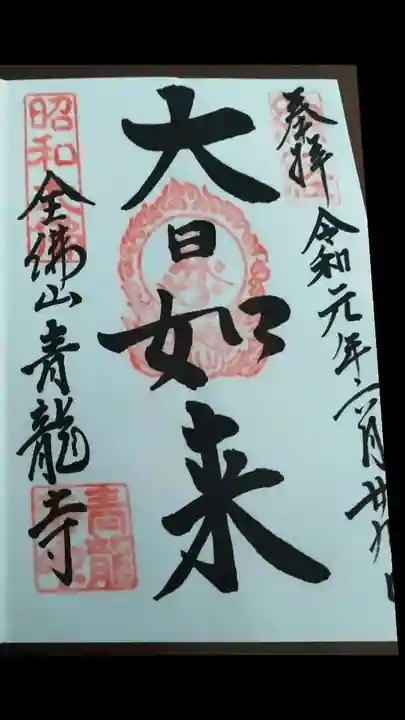 奉拝
令和元年六月廿九日
大日如来
昭和
全佛山青龍寺
青龍